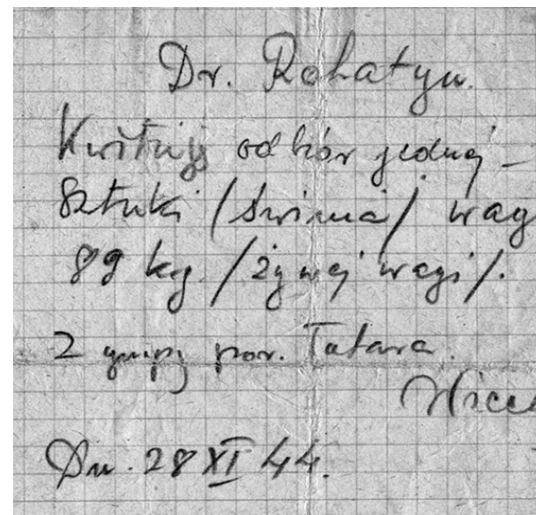 Dr. Rohatyn.
Kwituję odbiór jednej
sztuki /świnia/ wag
89 kg /żywej wagi/.
Z grupy por. Tatara.
Dn. 28 XI 44.